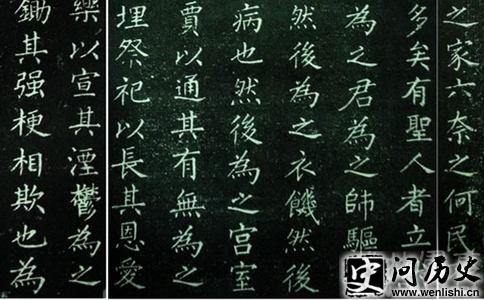 之家六奈之何民
多矣有聖人者立
為之君為之師驅
然後為之衣饑然後
病也然後為之宫室
賈以通其有無為之
埋祭祀以長其恩愛
樂以宣其湮鬱為之
鋤其强梗相欺也為
史 问历史
www.wenlishi.cn